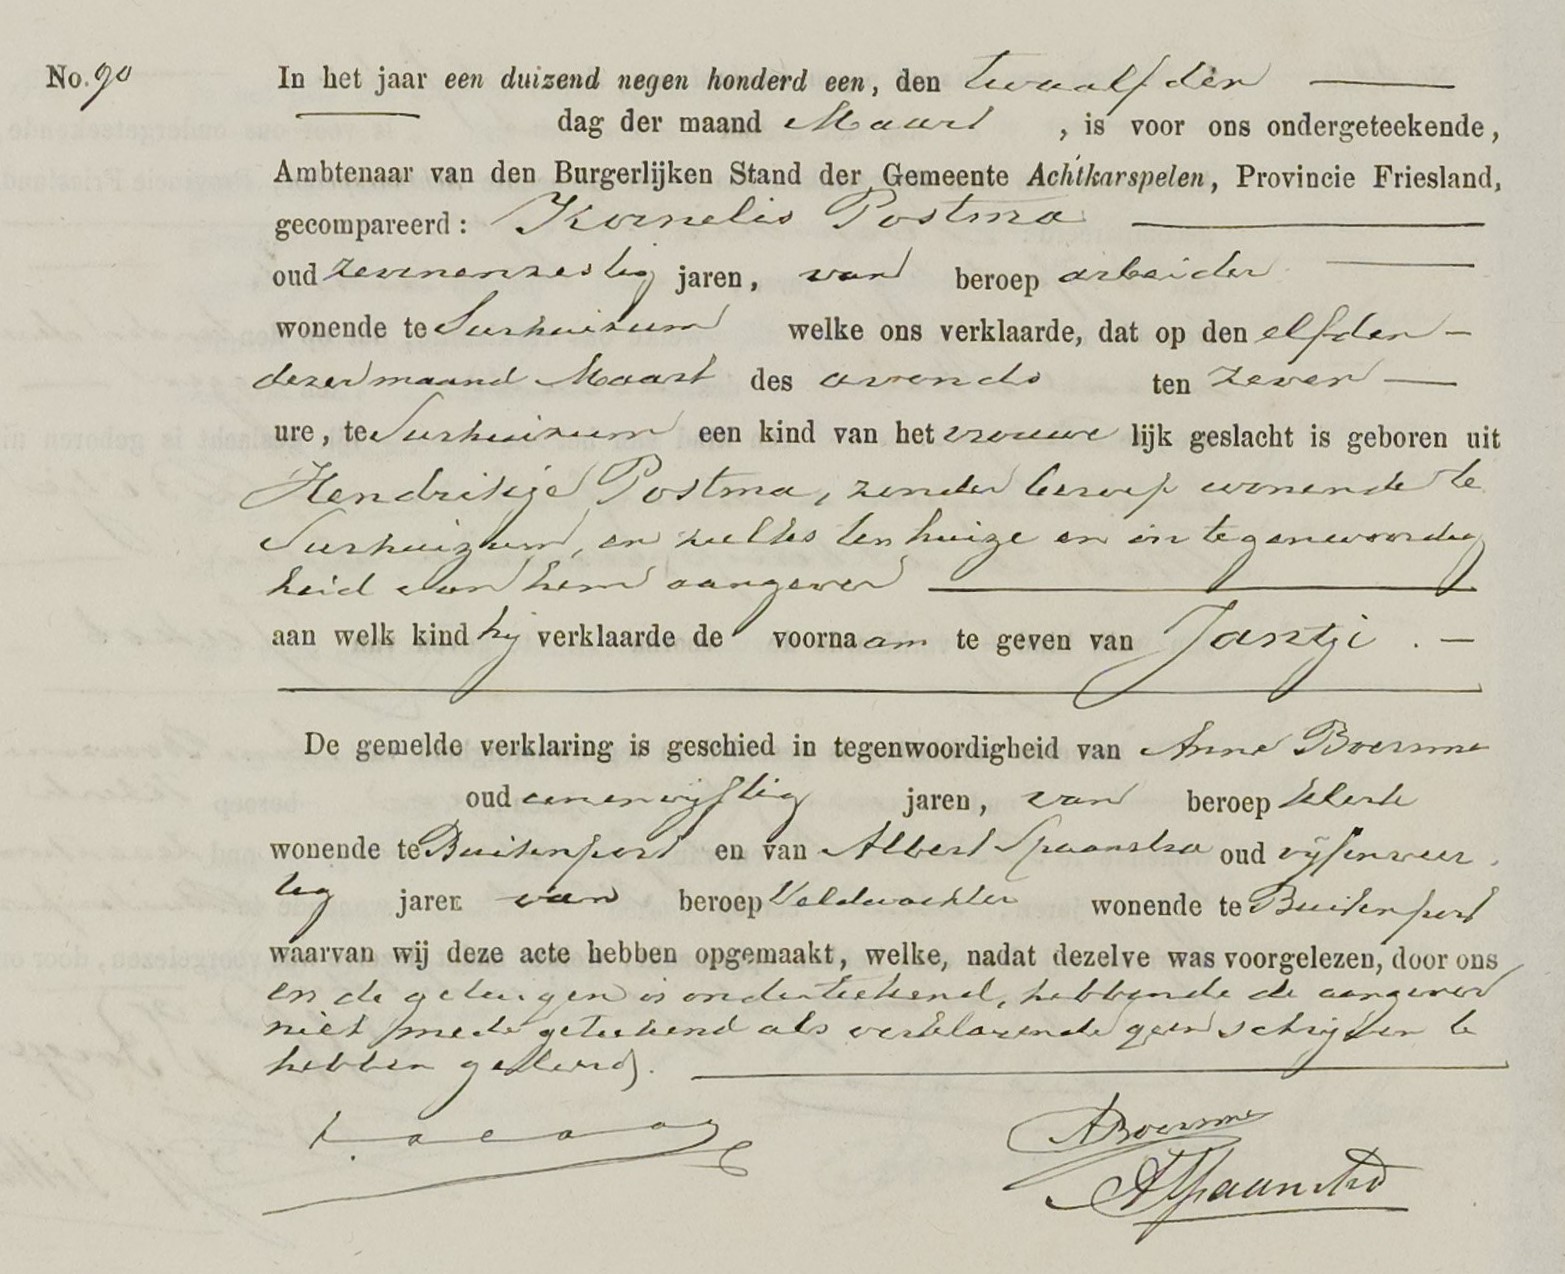 No. 90
In het jaar een duizend negen honderd een, den twaalfden
dag der maand Maart , is voor ons ondergeteekende,
Ambtenaar van den Burgerlijken Stand der Gemeente Achtkarspelen, Provincie Friesland,
gecompareerd: Kornelis Postma
oud zevenenzestig jaren, van beroep arbeider
wonende te Surhuizum welke ons verklaarde, dat op den elfden
dezer maand Maart des avonds ten zeven
ure, te Surhuizum een kind van het vrouwe lijk geslacht is geboren uit
Hendrikje Postma, zonder beroep wonende te
Surhuizum, en zulks ten huize en in tegenwoordig
heid van hem aangever
aan welk kind hij verklaarde de voornaam te geven van Jantje . —
De gemelde verklaring is geschied in tegenwoordigheid van Anne Boersma
oud eenenvijftig jaren, van beroep klerk
wonende te Buitenpost en van Albert Spaanstra oud vijfenveer
tig jaren van beroep Veldwachter wonende te Buitenpost
waarvan wij deze acte hebben opgemaakt, welke, nadat dezelve was voorgelezen, door ons
en de getuigen is onderteekend, hebbende de aangever
niet mede geteekend als verklarende geen schrijven te
hebben geleerd.
ABoersma
ASpaanstra